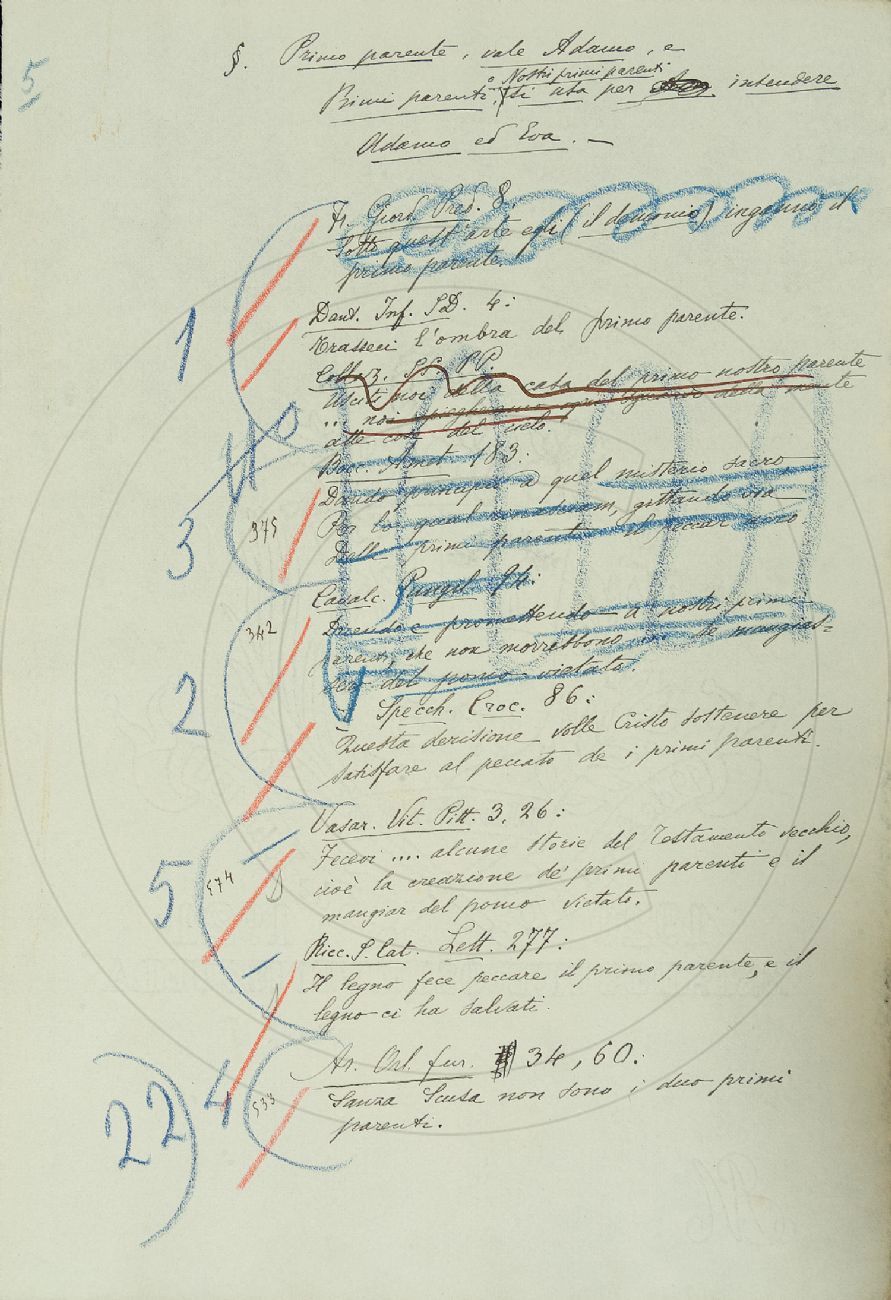 5
§. Primo parente, vale Adamo, e
o Nostri primi parenti
Primi parenti, si usa per intendere
Adamo ed Eva. —
Fr. Giord. Pred. 8.
Sotto quest'arte egli (il demonio) ingannò il
primo parente.
1
Dant. Inf. SD. 4:
Trasseci l'ombra del primo parente.
Collaz. SS. PP.
Usciti noi della casa del primo nostro parente
.. noi lo sguardo della mente
alle cose del cielo.
Bocc. Amet. 183:
Dando principio a quel misterio sacro
3
375
Per lo qual, gittando via
Delli primi parenti il peccar acro.
Cavalc. Pungil. 94:
342
Dicendo e promettendo a nostri primi
parenti, che non morrebbono se mangias=
sero del pomo vietato.
2
Specch. Croc. 86:
Questa derisione volle Cristo sostenere per
satisfare al peccato de i primi parenti.
Vasar. Vit. Pitt. 3. 26:
Fecevi .... alcune storie del Testamento vecchio,
5
574
cioè la creazione de' primi parenti e il
mangiar del pomo vietato.
Ricc. S. Cat. Lett. 277:
Il legno fece peccare il primo parente, e il
legno ci ha salvati.
Ar. Orl. fur. 34, 60:
22
4
533
Sanza scusa non sono i duo primi
parenti.